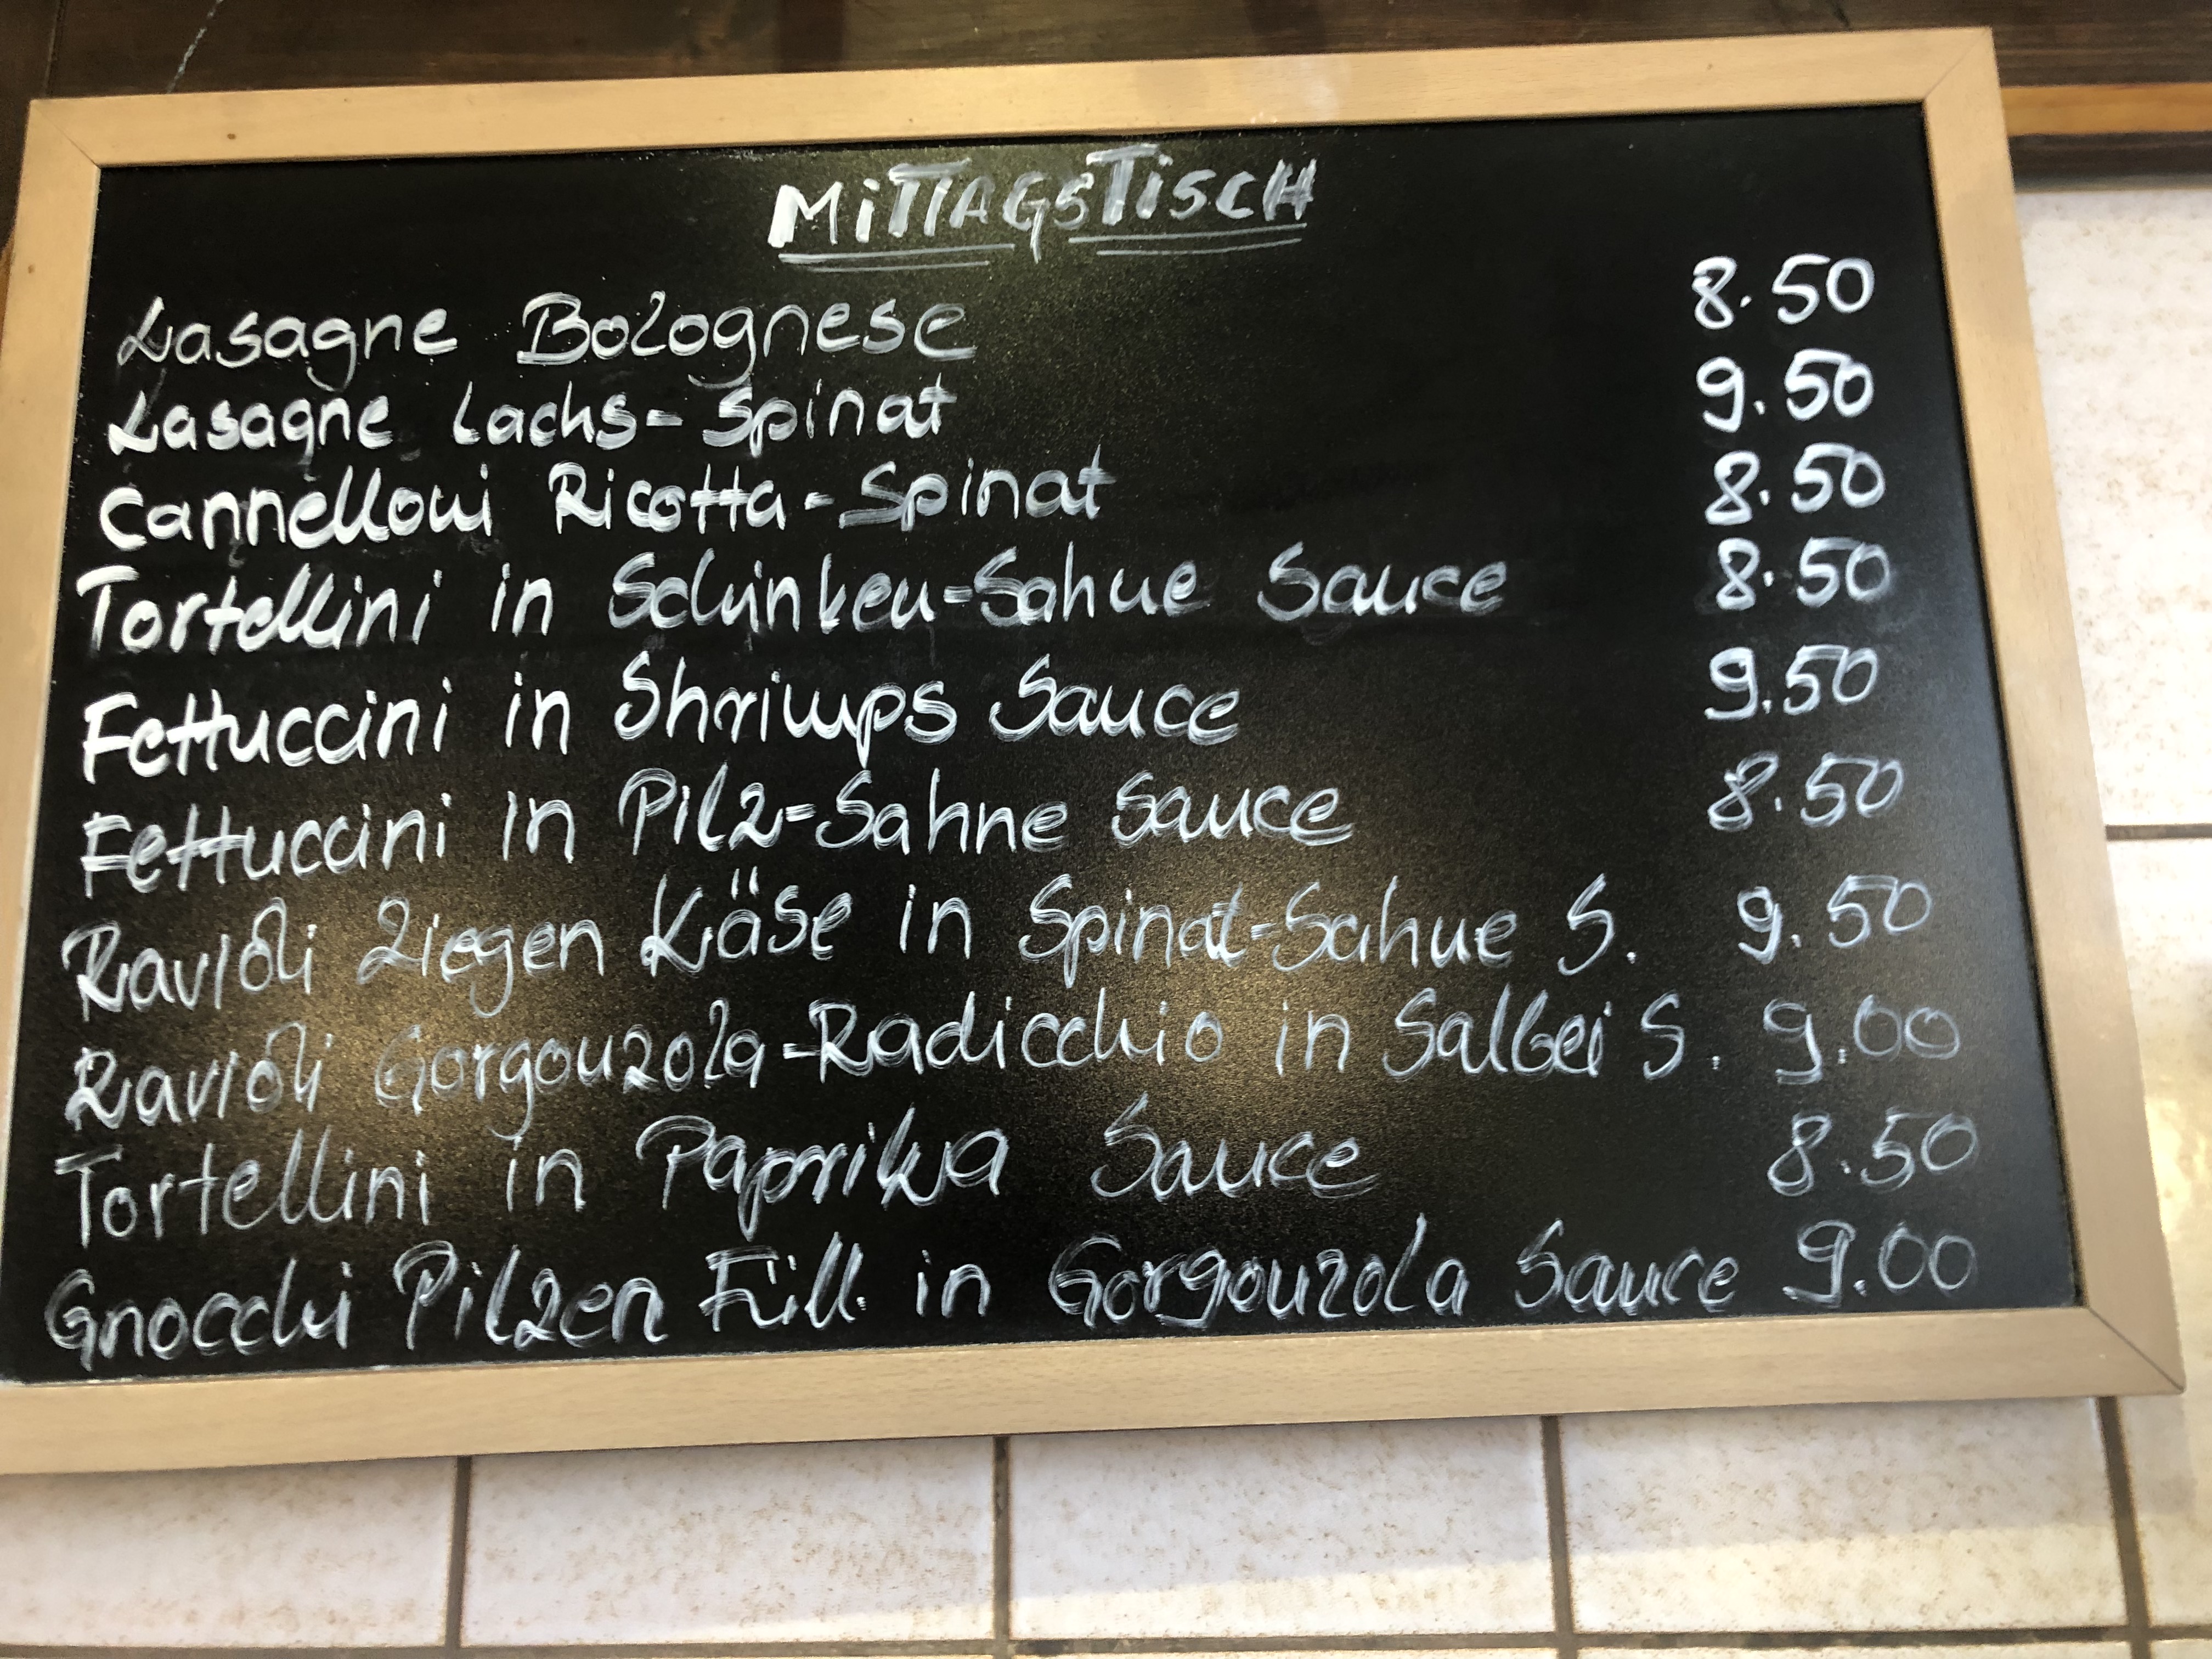 MITTAGSTISCH
Lasagne Bolognese 8.50
Lasagne Lachs-Spinat 9.50
Cannelloni Ricotta-Spinat 8.50
Tortellini in Schinken-Sahne Sauce 8.50
Fettuccini in Shrimps Sauce 9.50
Fettuccini in Pilz-Sahne Sauce 8.50
Ravioli Ziegen Käse in Spinat-Sahne S. 9.50
Ravioli Gorgonzola-Radicchio in Salbei S. 9.00
Tortellini in Paprika Sauce 8.50
Gnocchi Pilzen Füll. in Gorgonzola Sauce 9.00